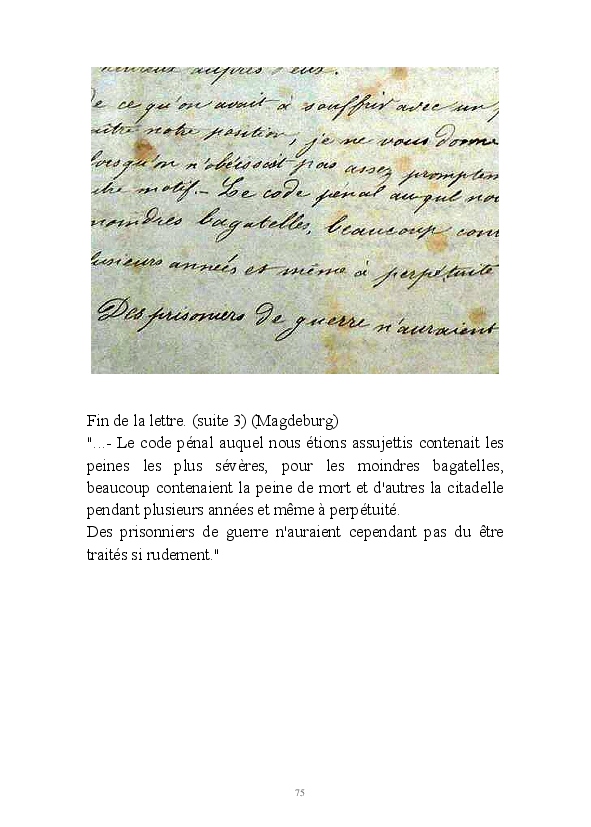 heureux auprès d'eux.
de ce qu'on avait à souffrir avec un
notre position, je ne vous donne
lorsqu'on n'obéissait pas assez promptem
motif. - Le code pénal auquel nou
moindres bagatelles, beaucoup con
lusieurs années et même à perpétuité
Des prisoniers de guerre n'auraient
Fin de la lettre. (suite 3) (Magdeburg)
"...- Le code pénal auquel nous étions assujettis contenait les
peines les plus sévères, pour les moindres bagatelles,
beaucoup contenaient la peine de mort et d'autres la citadelle
pendant plusieurs années et même à perpétuité.
Des prisonniers de guerre n'auraient cependant pas du être
traités si rudement."
75